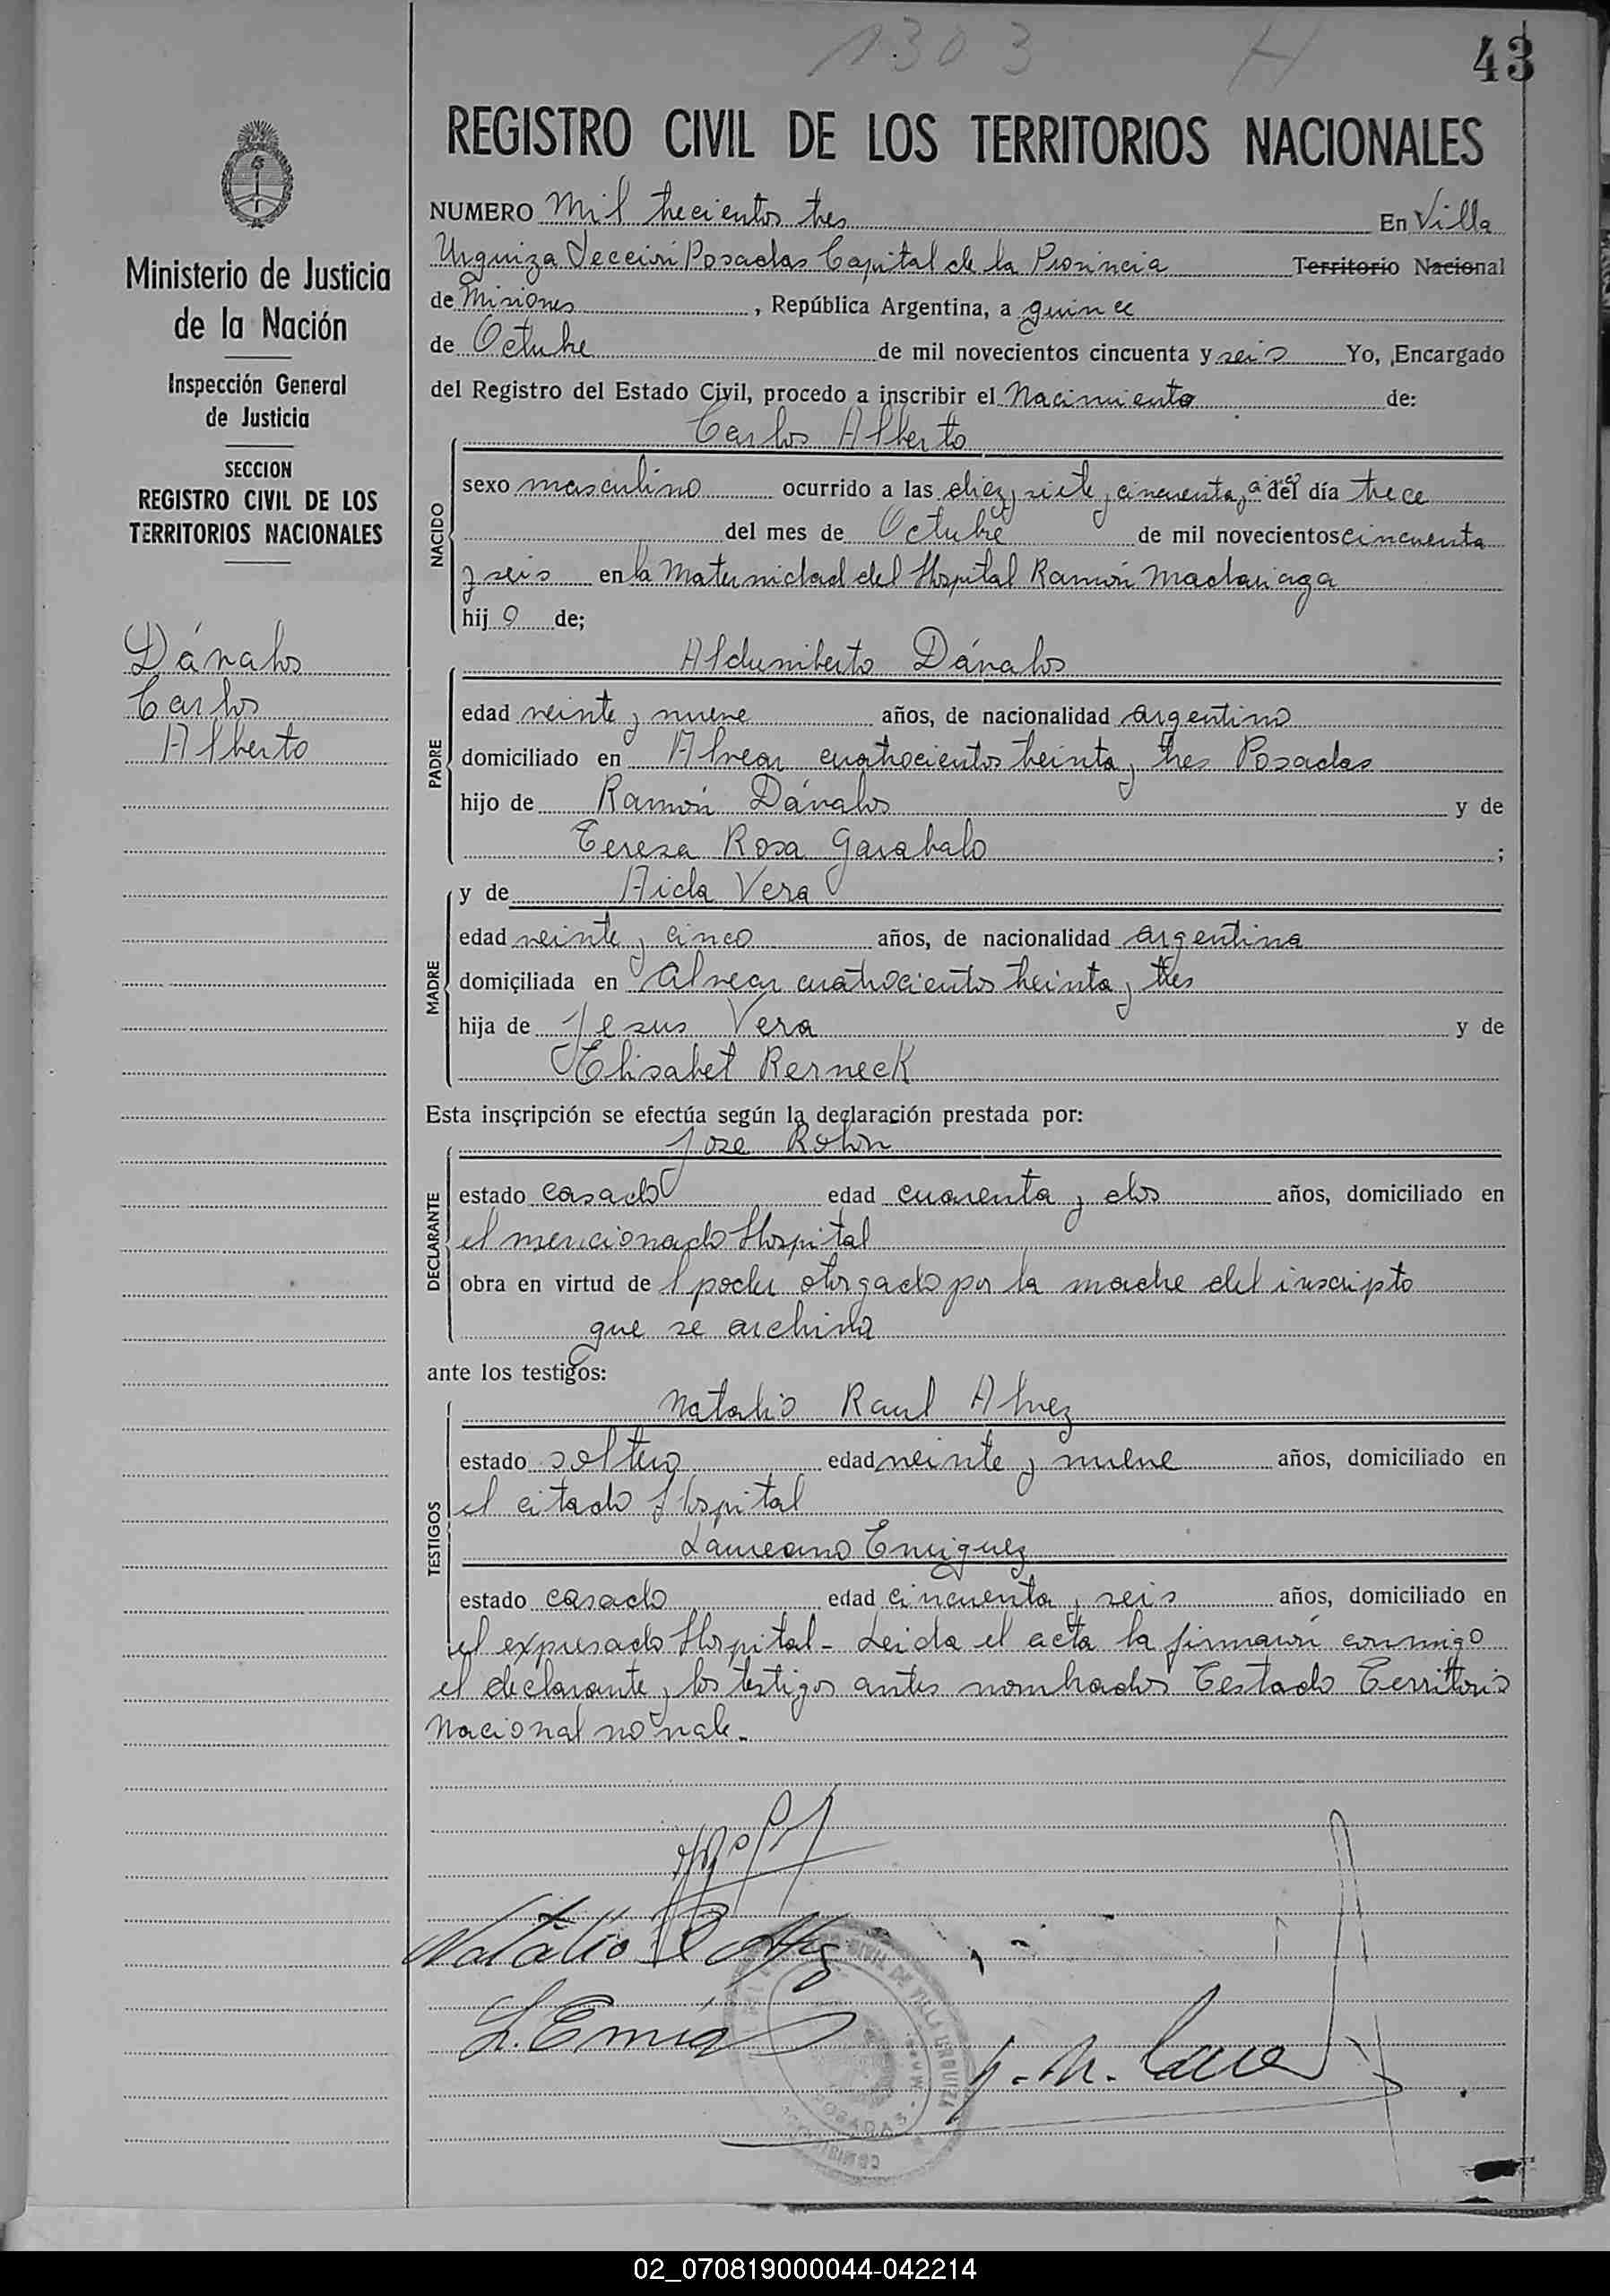 1303 H
43
REGISTRO CIVIL DE LOS TERRITORIOS NACIONALES
Ministerio de Justicia
de la Nación
Inspección General
de Justicia
SECCION
REGISTRO CIVIL DE LOS
TERRITORIOS NACIONALES
Dávalos
Carlos
Alberto
NUMERO Mil trecientos tres En Villa
Urquiza Sección Posadas Capital de la Provincia Territorio Nacional
de Misiones, República Argentina, a quince
de Octubre de mil novecientos cincuenta y seis Yo, Encargado
del Registro del Estado Civil, procedo a inscribir el Nacimiento de:
NACIDO
Carlos Alberto
sexo masculino ocurrido a las diez y siete y cincuenta, del día trece
del mes de Octubre de mil novecientos cincuenta
y seis en la Maternidad del Hospital Ramón Madariaga
hijo de;
PADRE
Aldumiberto Dávalos
edad veinte y nueve años, de nacionalidad argentino
domiciliado en Alvear cuatrocientos treinta y tres Posadas
hijo de Ramón Dávalos y de
Teresa Rosa Garabalo ;
MADRE
y de Aida Vera
edad veinte y cinco años, de nacionalidad argentina
domiciliada en Alvear cuatrocientos treinta y tres
hija de Jesus Vera y de
Elisabet Rerneck
Esta inscripción se efectúa según la declaración prestada por:
DECLARANTE
Jose Rolon
estado casado edad cuarenta y dos años, domiciliado en
el mencionado Hospital
obra en virtud de l poder otorgado por la madre del inscripto
que se archiva
ante los testigos:
TESTIGOS
Natalio Raul Alvez
estado soltero edad veinte y nueve años, domiciliado en
el citado Hospital
Laureano Enriquez
estado casado edad cincuenta y seis años, domiciliado en
el expresado Hospital - Leida el acta la firmaron conmigo
el declarante y los testigos antes nombrados Testado Territorio
Nacional no vale.
Natalio R Alvez
POSADAS
02_070819000044-042214